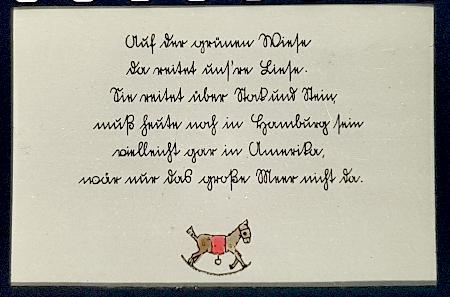 Auf der grünen Wiese
da reitet uns're Liese.
Sie reitet über Stok und Stein,
muß heute noch in Hamburg sein
vielleicht gar in Amerika,
wär nur das große Meer nicht da.